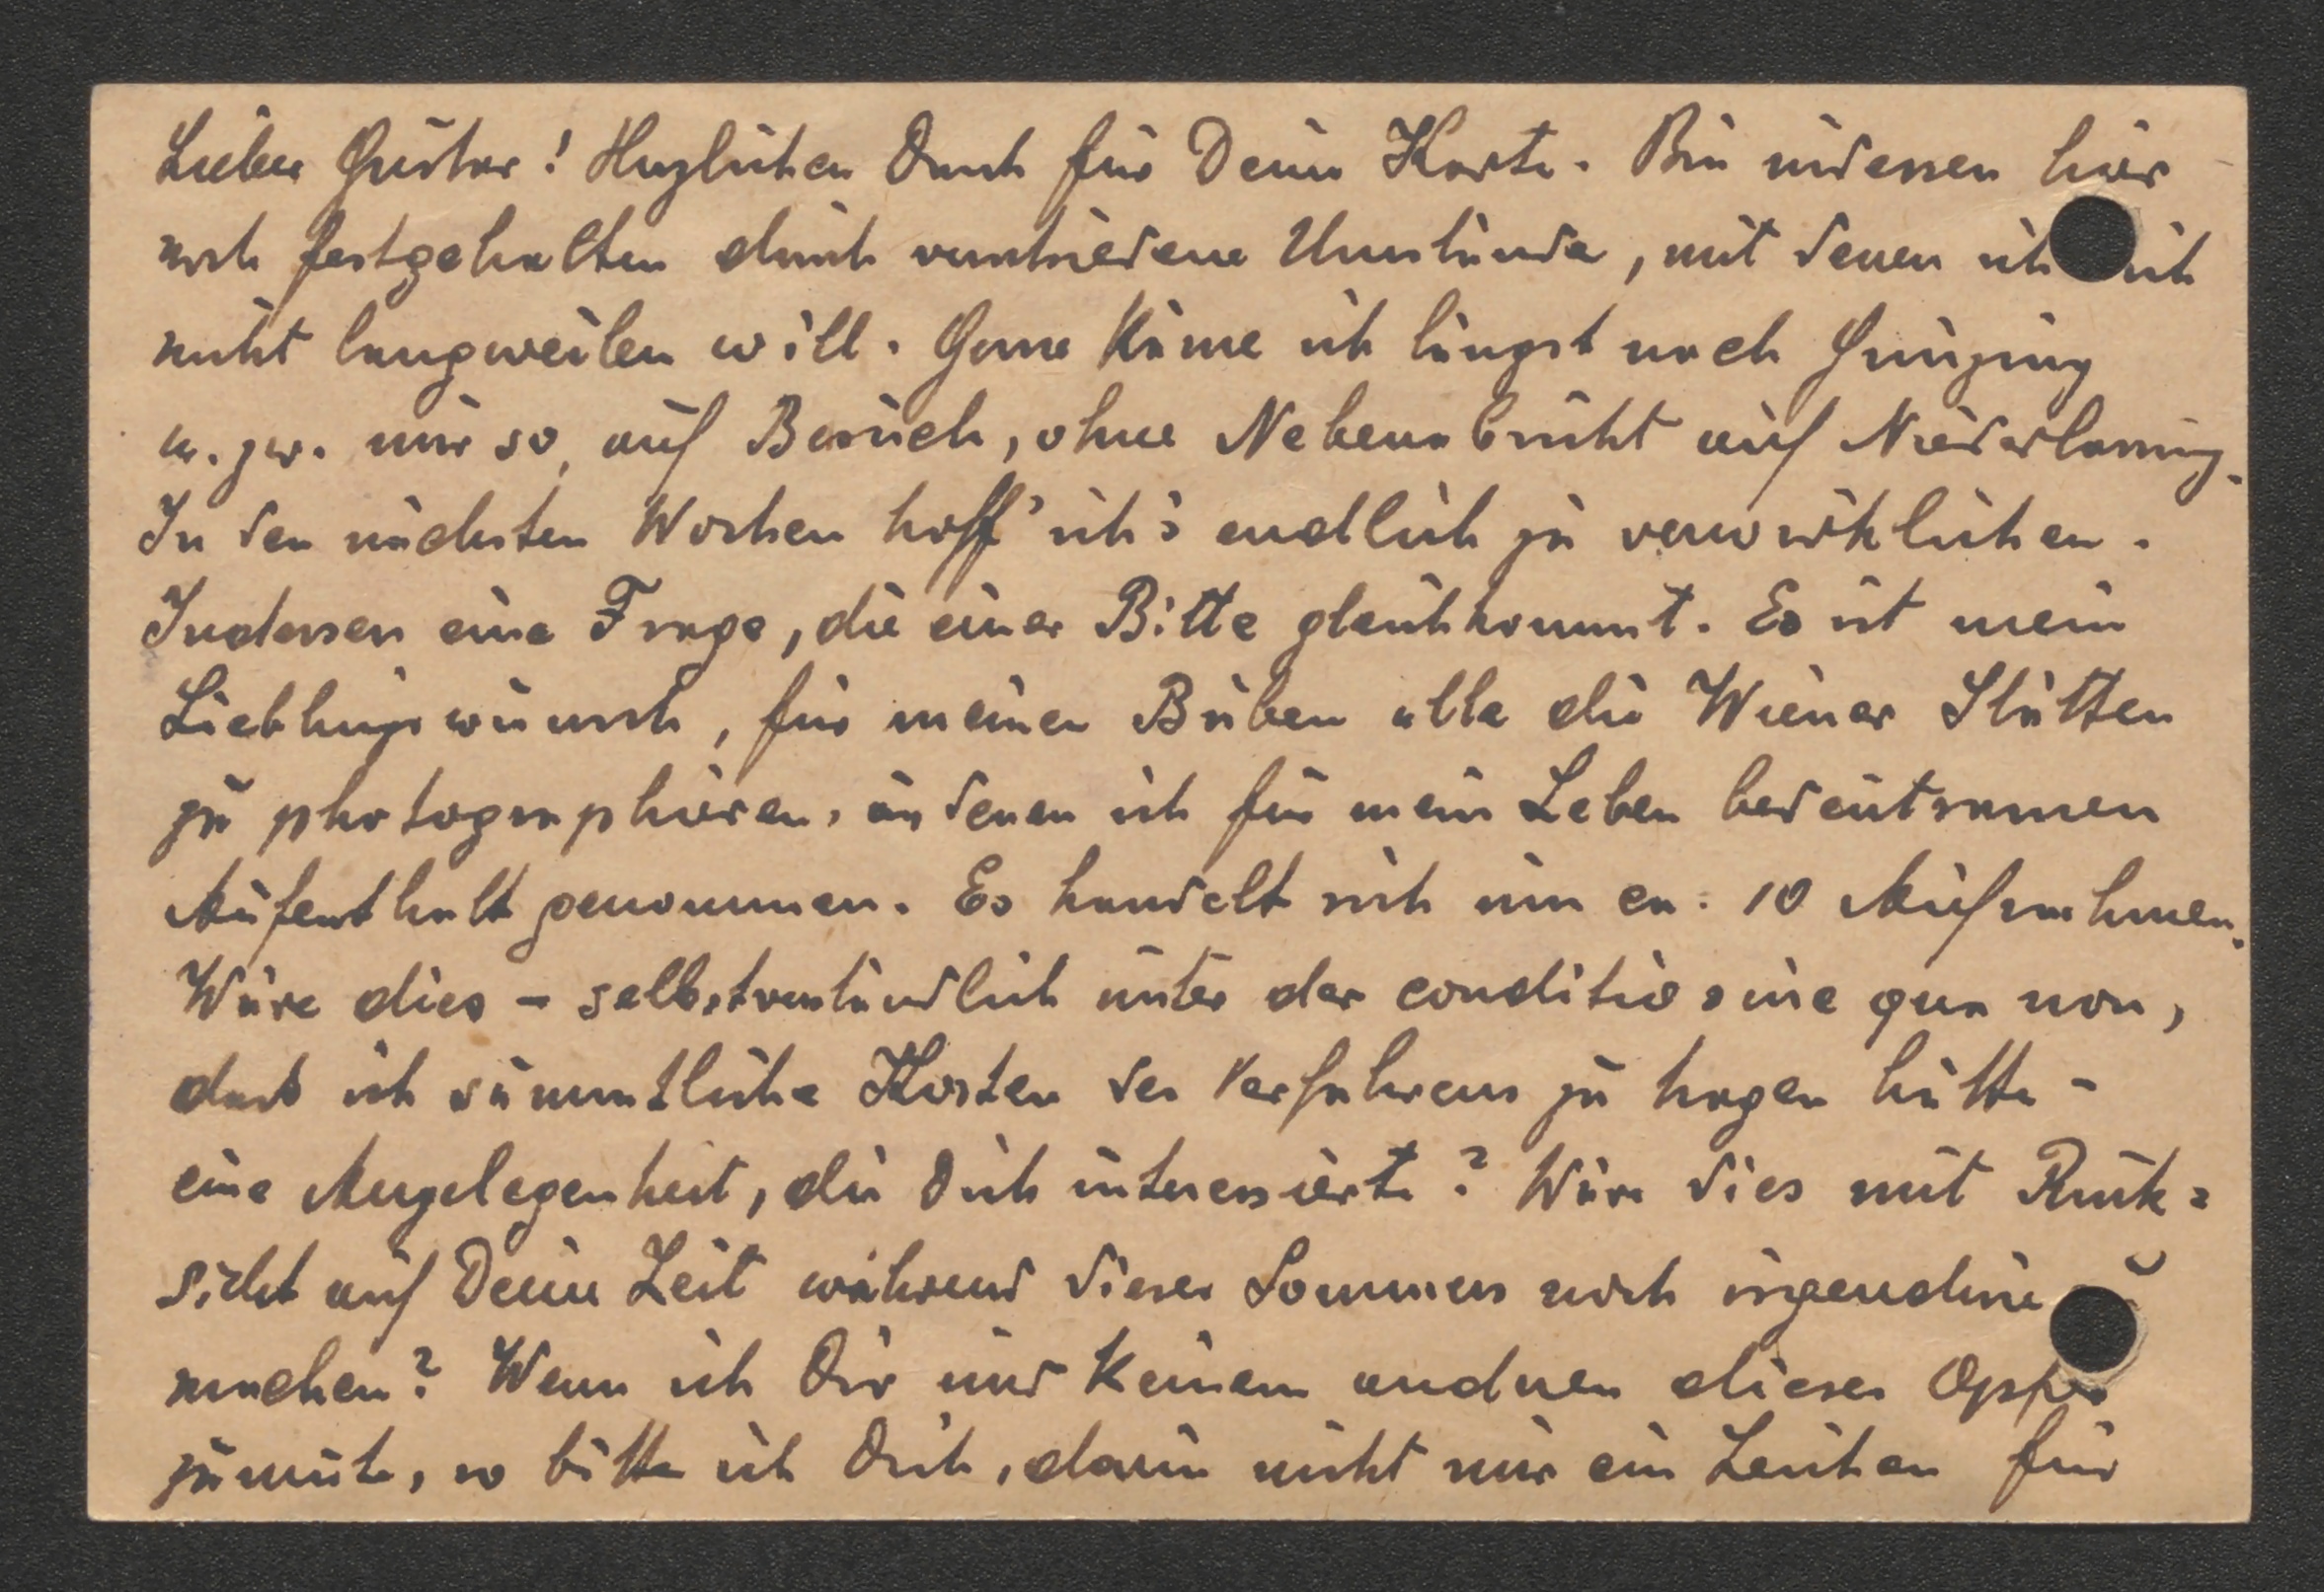 Lieber Gustav! Herzlichen Dank für Deine Karte. Bin indessen hier
noch festgehalten durch verschiedene Umstände, mit denen ich ich
nicht langweilen will. Gerne käme ich längst nach Grinzing
u. zw. nur so, auf Besuch, ohne Nebenabsicht auf Niederlassung.
In den nächsten Wochen hoff' ich's endlich zu verwirklichen.
Indessen eine Frage, die einer Bitte gleichkommt. Es ist mein
Lieblingswunsch, für meinen Buben alle die Wiener Stätten
zu photographieren, an denen ich für mein Leben bedeutsamen
Aufenthalt genommen. Es handelt sich um ca. 10 Aufnahmen.
Wäre dies – selbstverständlich unter der conditio sine qua non,
dass ich sämmtliche Kosten des Verfahrens zu tragen hätte –
eine Angelegenheit, die Dich interessierte? Wäre dies mit Rück=
sicht auf Deine Zeit während dieses Sommers noch irgendeine
machen? Wenn ich Dir und keinem andren dieses Opfer
zumute, so bitte ich Dich, darin nicht nur ein Zeichen für